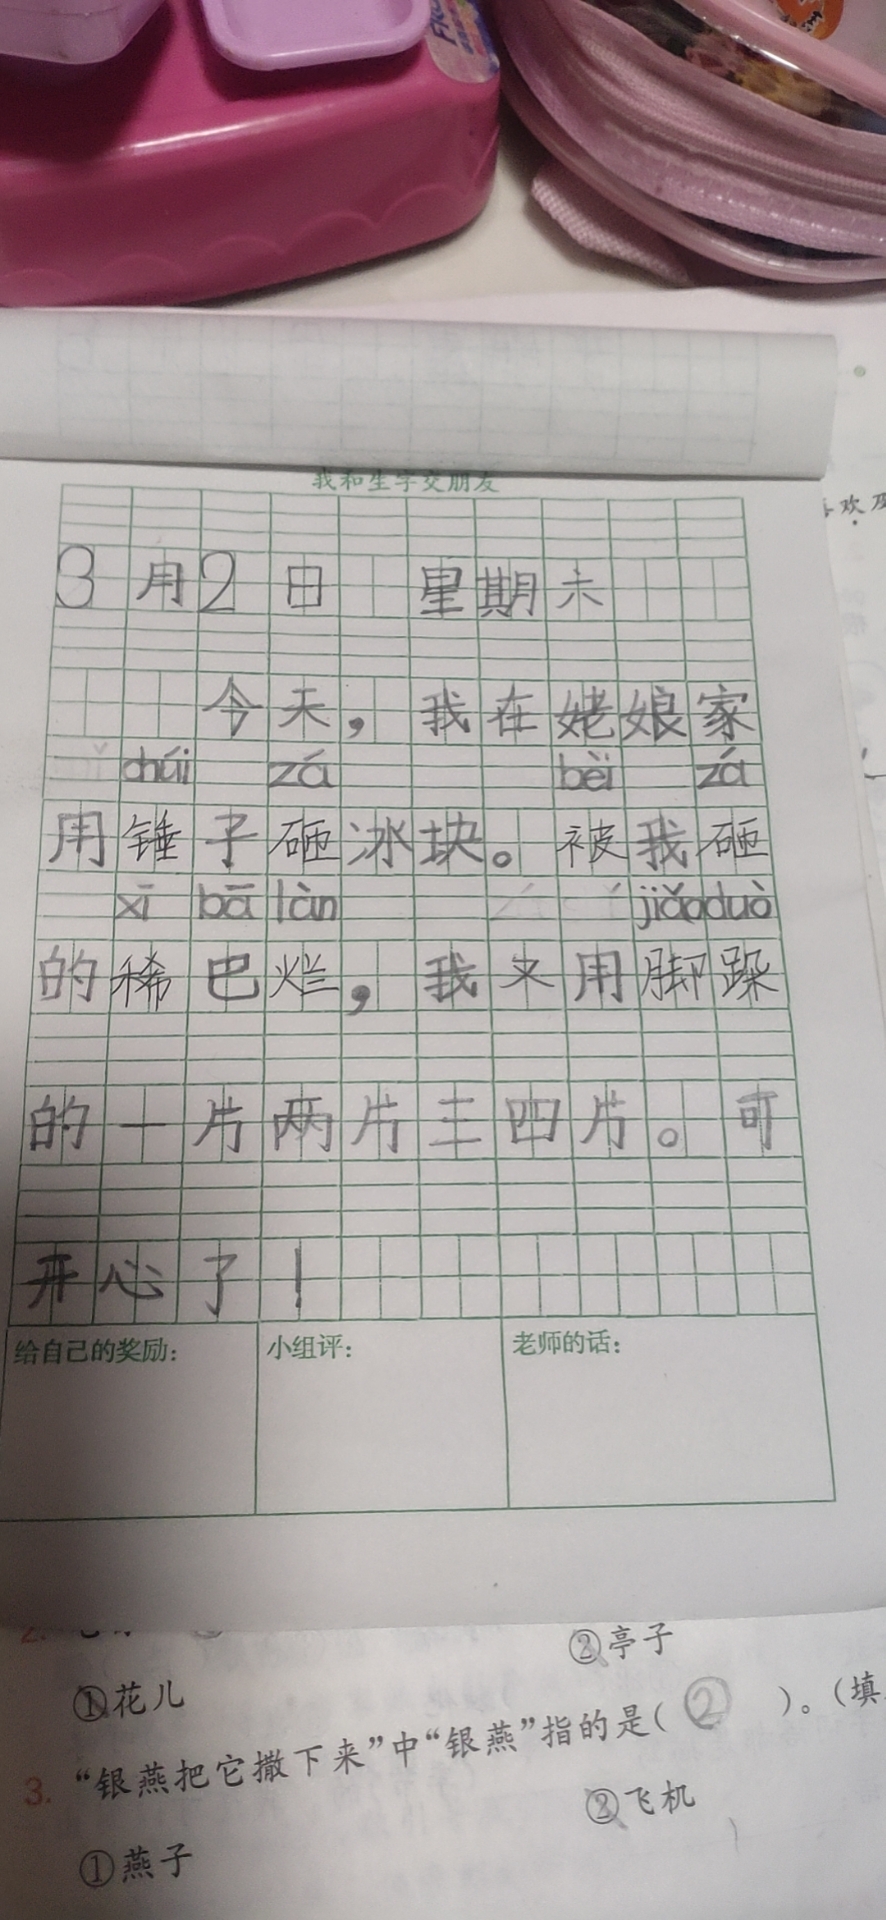 我和生字交朋友
3月2日 星期六
今天，我在姥娘家
chúi zá bèi zá
用锤子砸冰块。被我砸
xī bā làn jiǎo duò
的稀巴烂，我又用脚跺
的一片两片三四片。可
开心了！
给自己的奖励： 小组评： 老师的话：
②亭子
①花儿
3. “银燕把它撒下来”中“银燕”指的是( ② )。(填
②飞机
①燕子